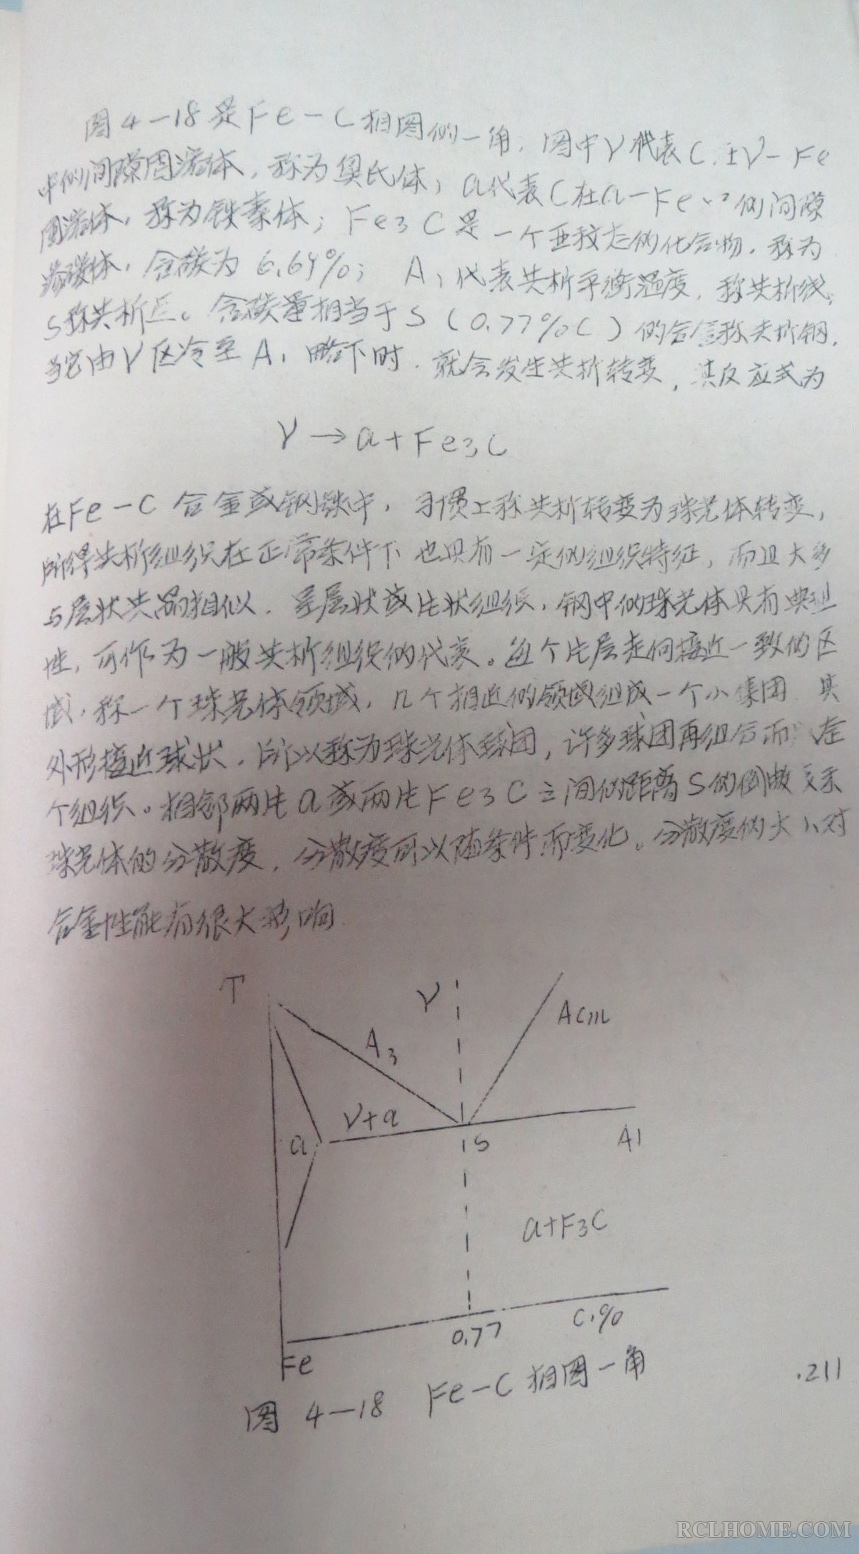 图4-18是Fe-C相图的一角，图中γ代表C在γ-Fe
中的间隙固溶体，称为奥氏体；α代表C在α-Fe中的间隙
固溶体，称为铁素体；Fe3C是一个亚稳态的化合物，称为
渗碳体，含碳为6.69%；A1代表共析平衡温度，称共析线；
S称共析点。含碳量相当于S（0.77%C）的合金称共析钢，
当它由γ区冷至A1略下时，就会发生共析转变，其反应式为
γ→α+Fe3C
在Fe-C合金或钢铁中，习惯上称共析转变为珠光体转变，
所得共析组织在正常条件下也具有一定的组织特征，而且大多
与层状共晶相似，呈层状或片状组织，钢中的珠光体具有典型
性，可作为一般共析组织的代表。每个片层走向接近一致的区
域，称一个珠光体领域，几个相近的领域组成一个小集团 其
外形接近球状，所以称为珠光体球团，许多球团再组合而
个组织。相邻两片α或两片Fe3C之间的距离S的倒数
珠光体的分散度，分散度可以随条件而变化。分散度的大小对
合金性能有很大影响
T
γ
Acm
A3
γ+α
α
S
A1
α+F3C
0.77
C.%
Fe
图 4-18 Fe-C相图一角
.211
RCLHOME.COM